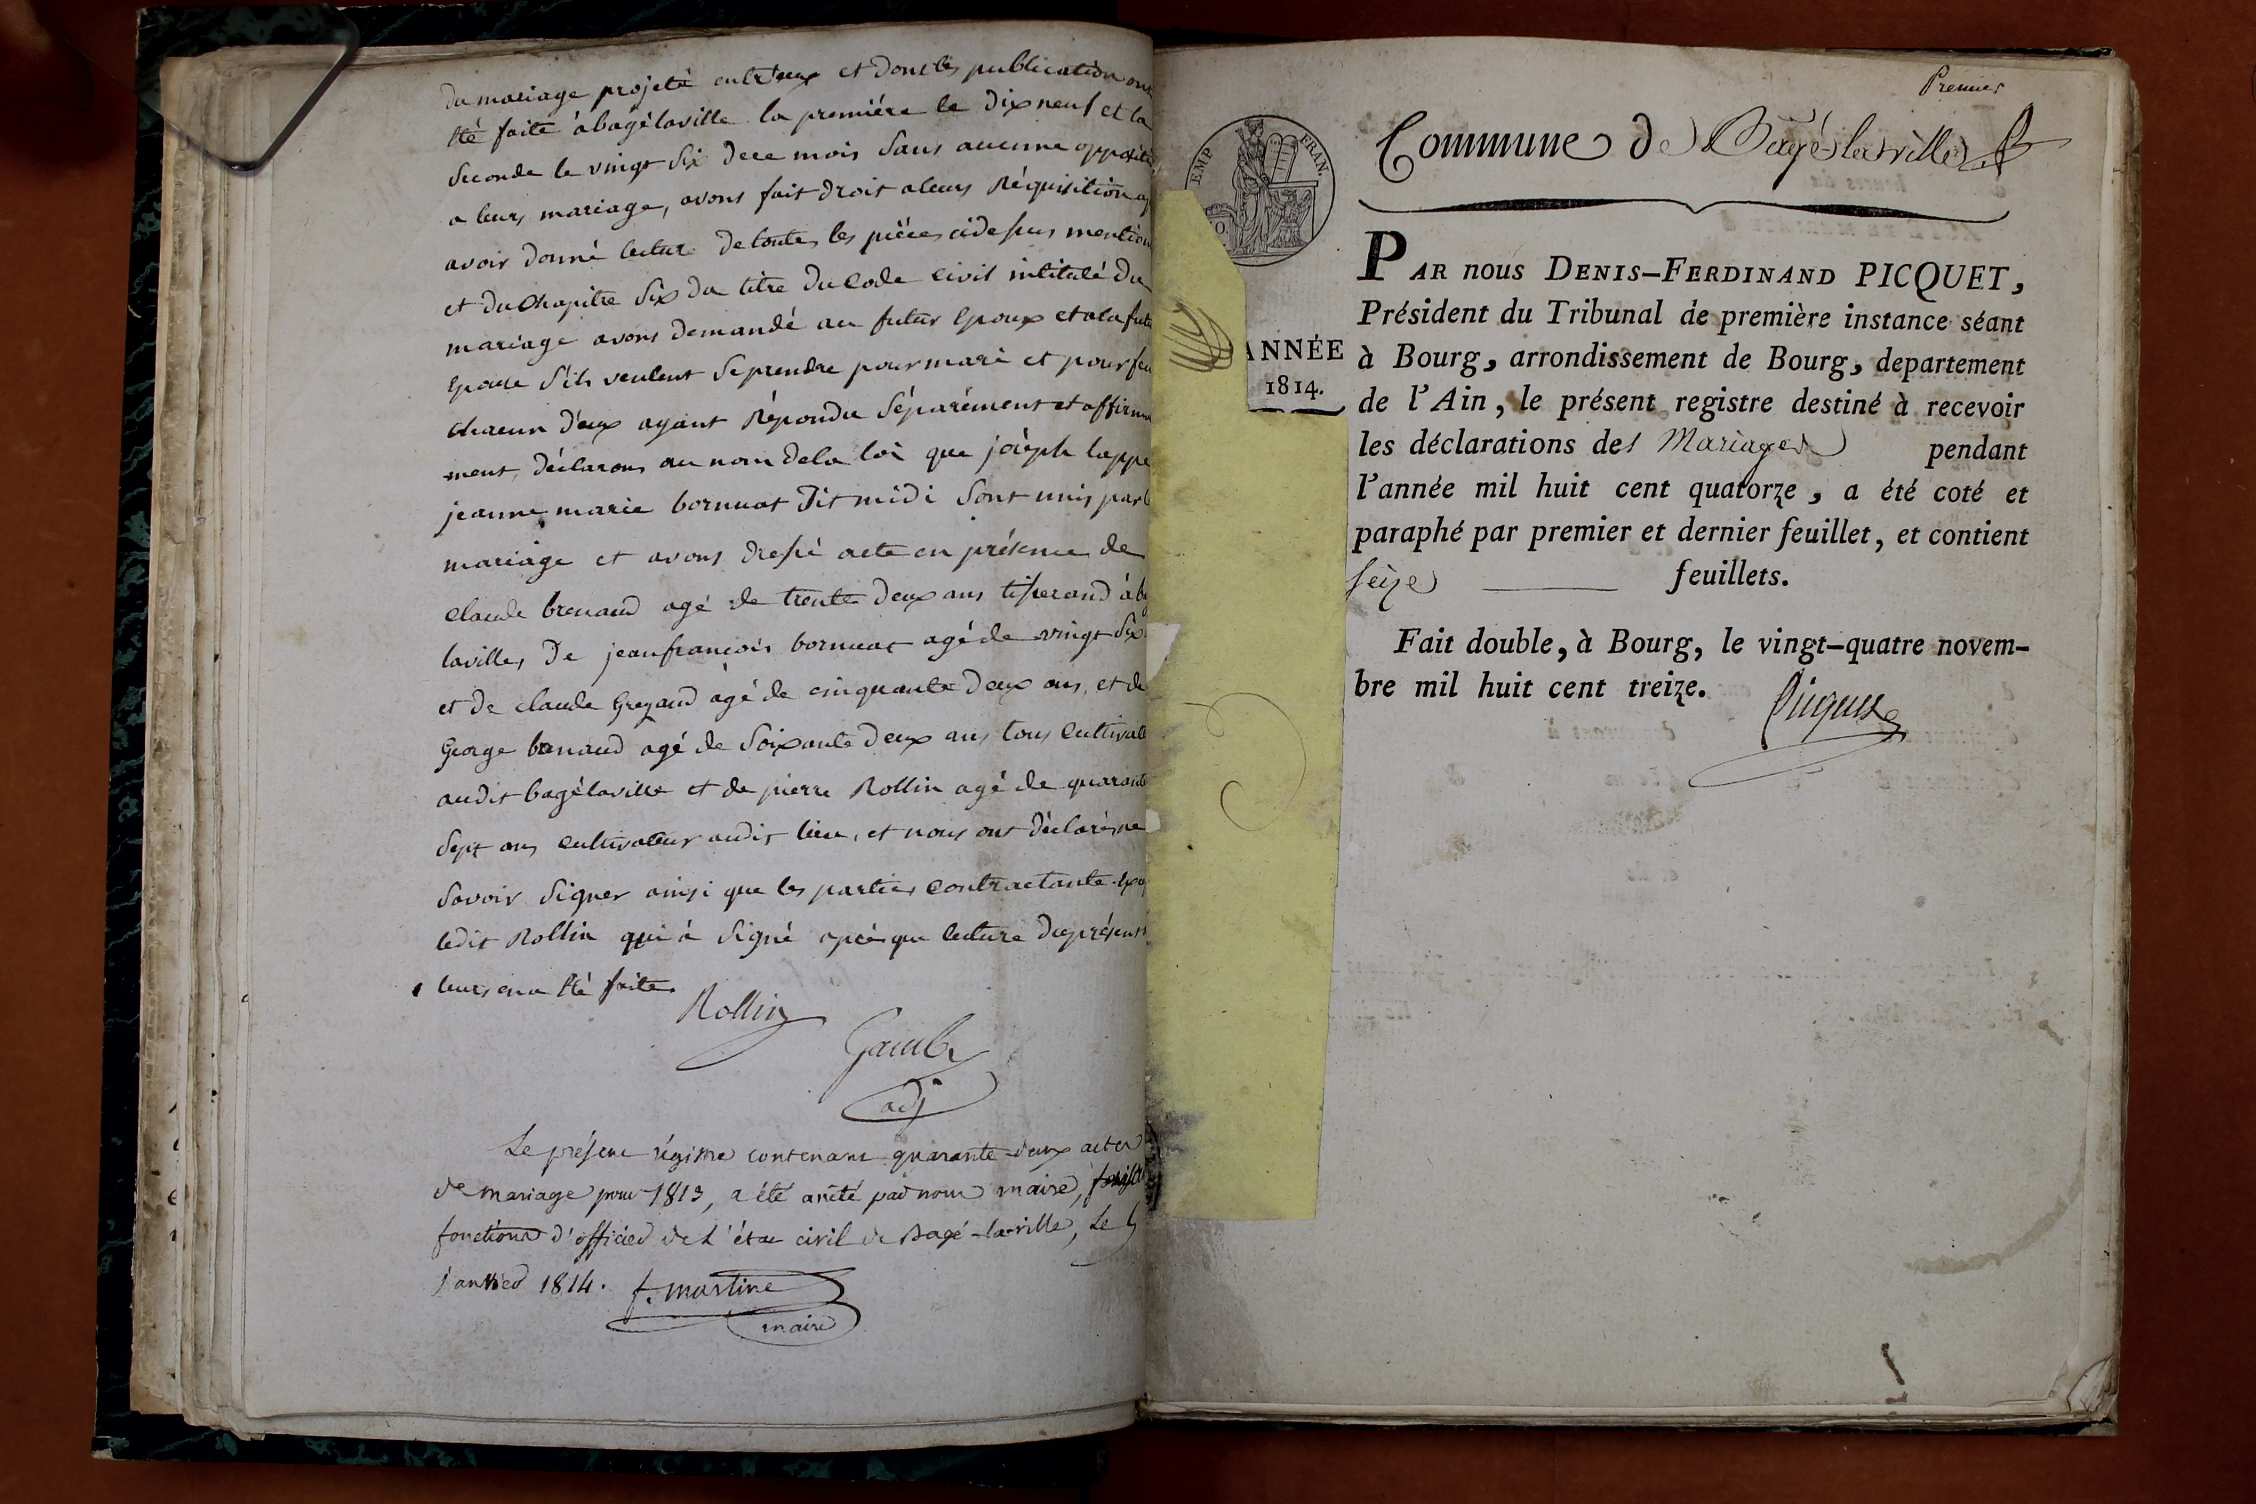 du mariage projeté entr'eux et dont les publication ont
été faite à bagé laville la premiére le dix neuf et la
seconde le vingt six dece mois sans aucune oppositi
a leurs mariage, avons fait droit a leurs réquisition
avoir donné lecture de toutes les piéces cidessus mention
et du chapitre six du titre du Code Civil intitulé du
mariage avons demandé au futur époux et ala futu
épouse s'ils veulent se prendre pour mari et pour fem
chacun d'eux ayant répondu séparément et affirma
ment, déclarons au nom dela loi que joseph
jeanne marie bornuat dit midi sont unis par le
mariage et avons dressé acte en présence de
claude brenaud agé de trente deux ans tisserand à b
laville, de jean françois bornuat agé de vingt six
et de claude Grezaud agé de cinquante deux ans, et de
George brenaud agé de soixante deux ans tous cultivate
audit bagélaville et de pierre Rollin agé de quarante
sept ans cultivateur audit lieu, et nous ont déclaré ne
savoir signer ainsi que les parties contractante
ledit Rollin qui à signé après que lecture du présent
leurs en a été faite.
Rollin
adj
Le présent régistre contenant quarante-deux actes
de mariage pour 1813, a été arrêté par nous maire,
fonctions d'officier de l'état civil de Bagé-la-ville, Le 5
janvier 1814. f. martine
maire
Premier
Commune de Bagé la ville
EMP. FRAN.
ANNÉE
1814.
PAR nous DENIS-FERDINAND PICQUET,
Président du Tribunal de première instance séant
à Bourg, arrondissement de Bourg, departement
de l'Ain, le présent registre destiné à recevoir
les déclarations des Mariages pendant
l'année mil huit cent quatorze, a été coté et
paraphé par premier et dernier feuillet, et contient
seize feuillets.
Fait double, à Bourg, le vingt-quatre novem-
bre mil huit cent treize.
Picquet